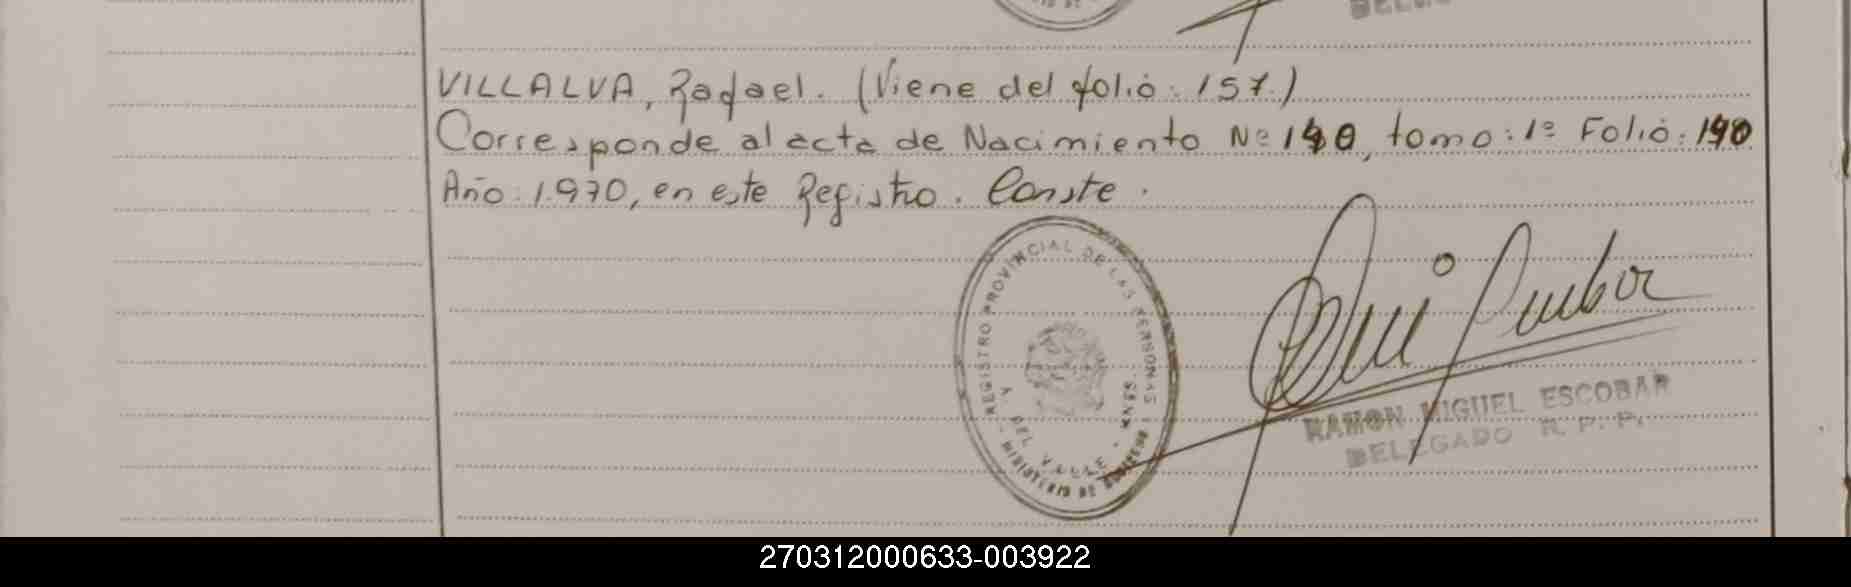 VILLALVA, Rafael. (Viene del folio: 157.)
Corresponde al acta de Nacimiento Nº 190, tomo: 1º Folio: 190
Año: 1.970, en este Registro. Conste.
REGISTRO PROVINCIAL DE LAS PERSONAS
MINISTERIO DE GOBIERNO
DEL VALLE
RAMON MIGUEL ESCOBAR
DELEGADO R. P. P.
270312000633-003922